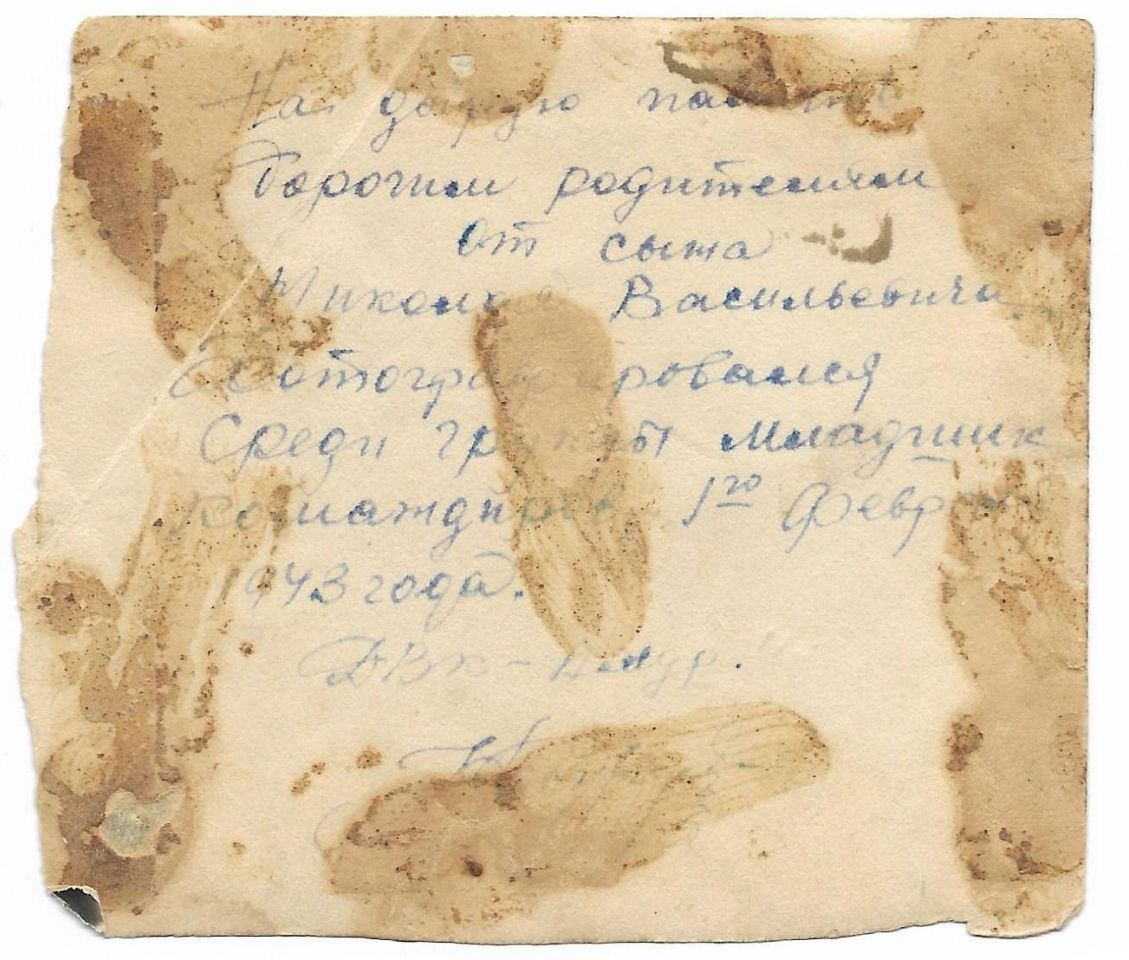 На добрую память
Дорогим родителям
от сына
Николая Васильевича
Сфотографировался
Среди группы Младших
командиров 1го февраля
1943 года.
ДВК - Амур.